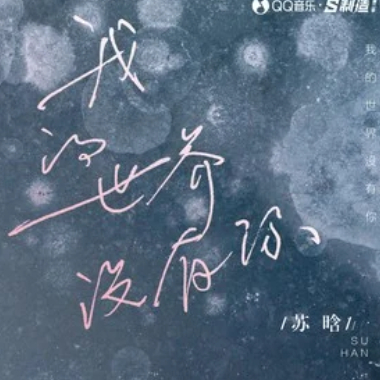 QQ音乐·S制造!
我的世界没有你
我
的世界
没有你、
/苏晗/
SU
HAN